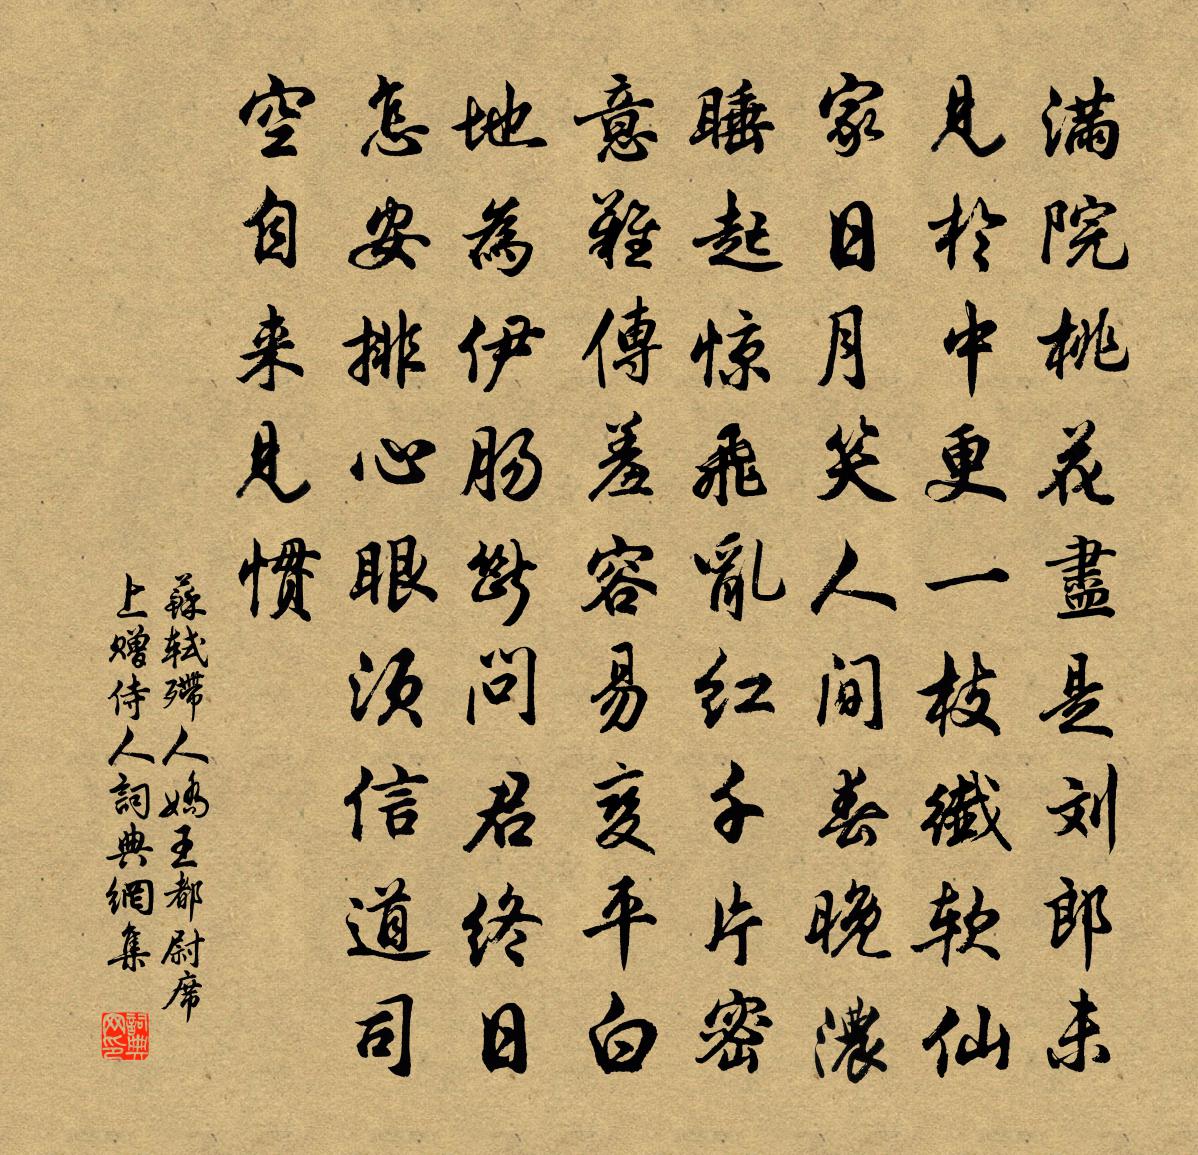 满院桃花盡是刘郎未
見於中更一枝纖软仙
家日月笑人间春晚濃
睡起惊飛亂红千片密
意難傳羞容易变平白
地為伊肠斷问君终日
怎安排心眼须信道司
空自来見惯
蘇轼殢人嬌王都尉席
上赠侍人詞典網集
詞典
网印